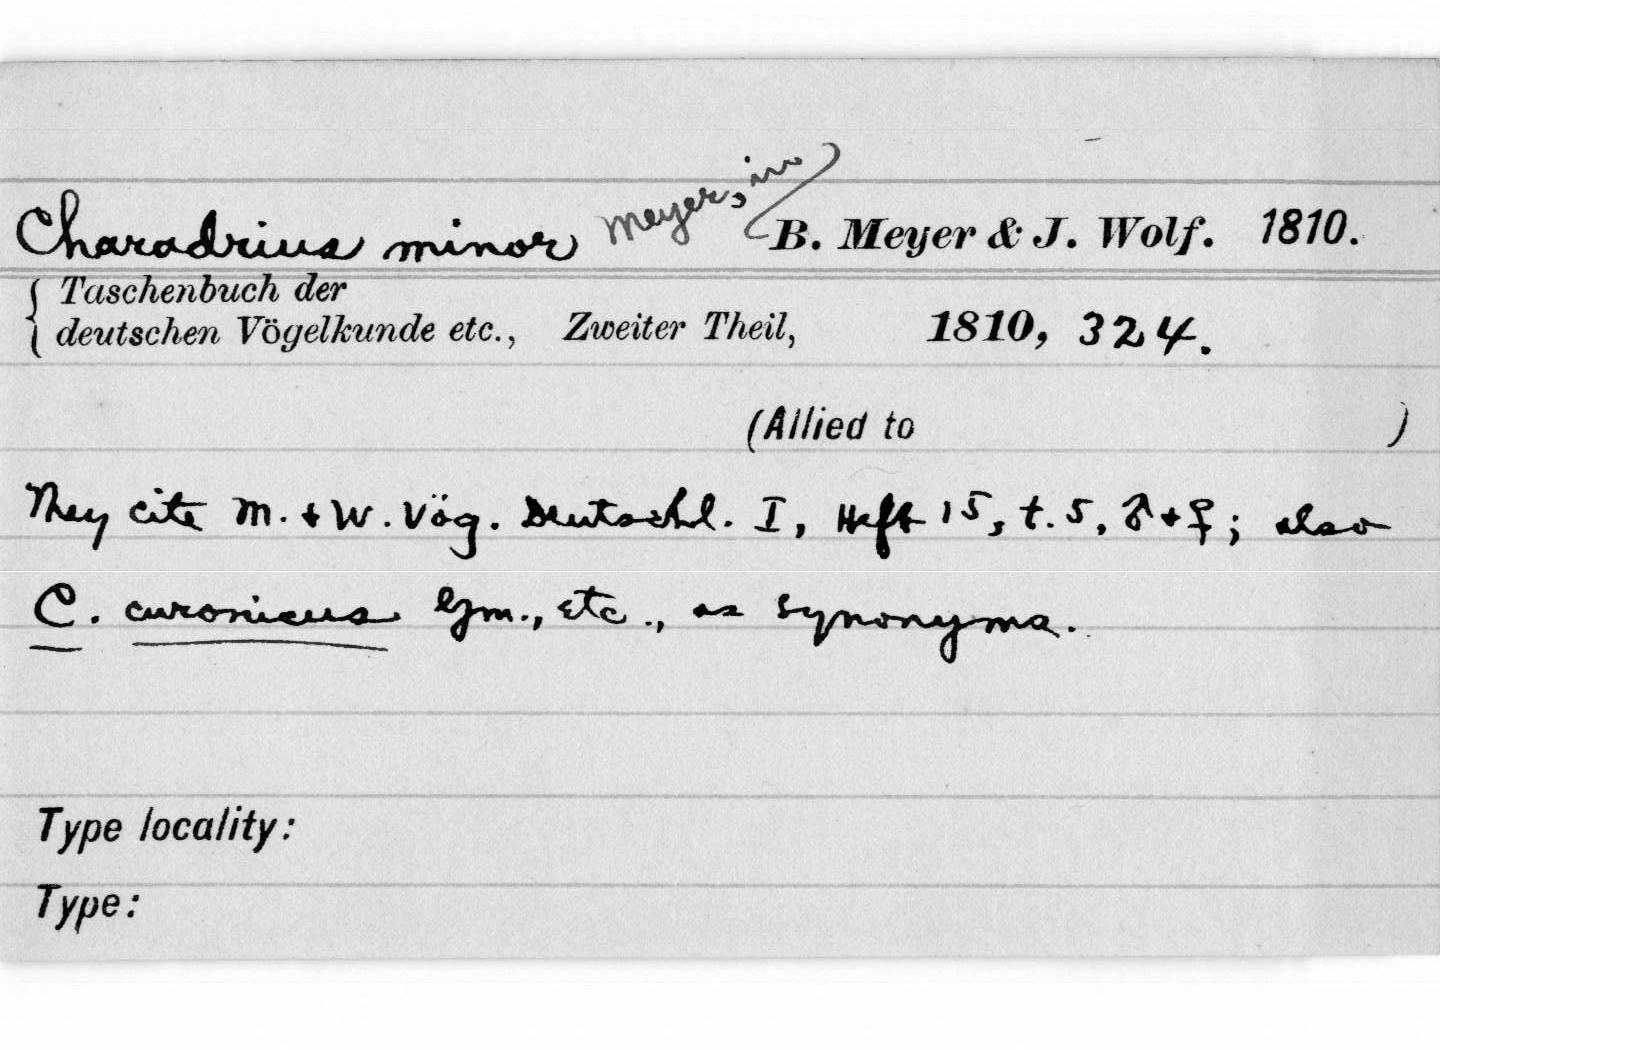 Charadrius minor Meyer, in B. Meyer & J. Wolf. 1810.
Taschenbuch der
deutschen Vögelkunde etc., Zweiter Theil, 1810, 324.
(Allied to )
They cite M. + W. Vög. Deutschl. I, Heft 15, t. 5, ♂ + ♀; also
C. curonicus Gm., etc., as synonyms.
Type locality:
Type: